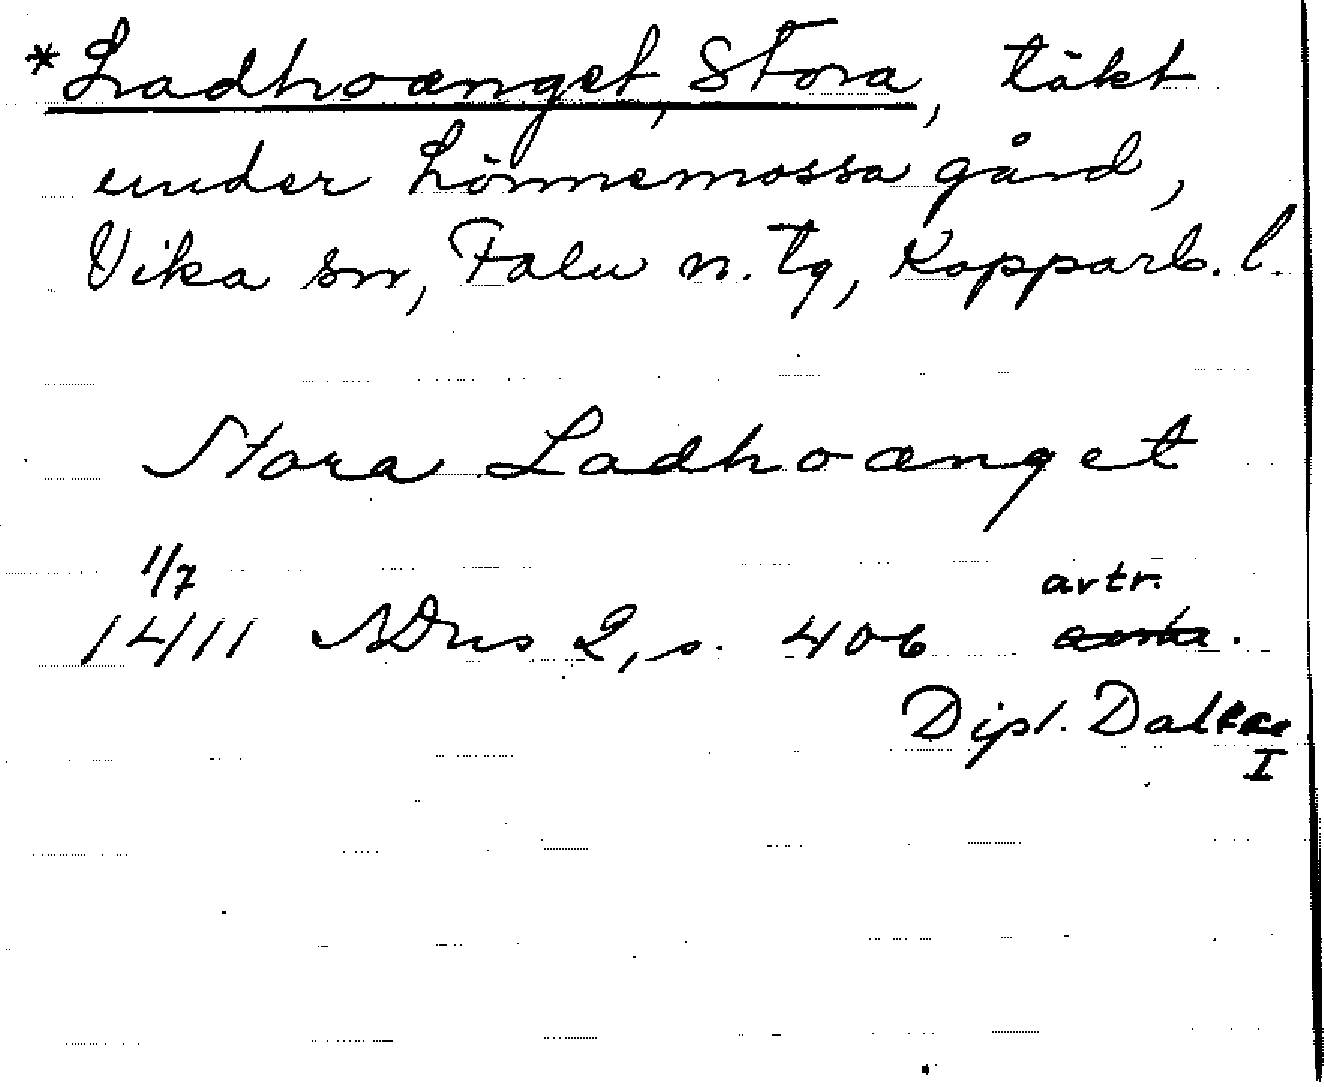 *Ladhoænget, Stora, täkt
under Lönnemossa gård,
Vika sn, Falu n. tg, Kopparb. l.
Stora Ladhoænget
1/7
1411 SDns 2, s. 406 avtr.
Dipl. Dalekre
I